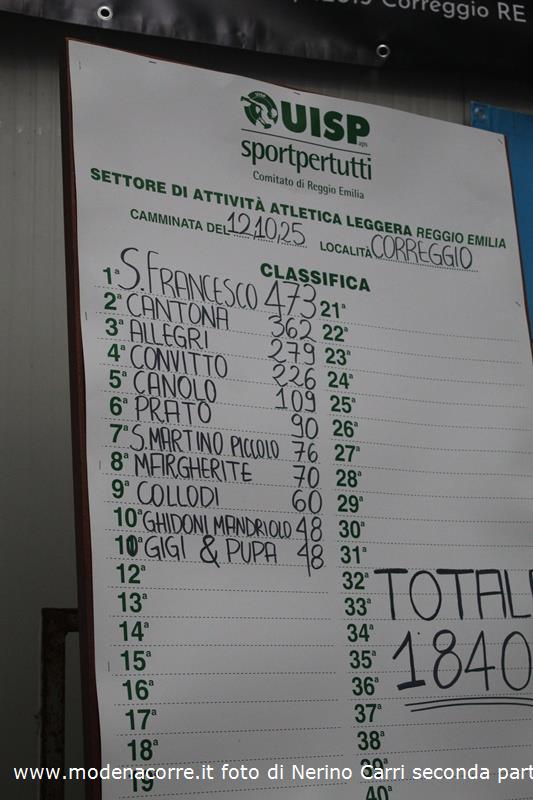 2019 Correggio RE
UISP aps
sportpertutti
Comitato di Reggio Emilia
SETTORE DI ATTIVITÀ ATLETICA LEGGERA REGGIO EMILIA
CAMMINATA DEL 12,10,25 LOCALITÀ CORREGGIO
CLASSIFICA
1ª S. FRANCESCO 473
2ª CANTONA 362
3ª ALLEGRI 279
4ª CONVITTO 226
5ª CANOLO 109
6ª PRATO 90
7ª S. MARTINO PICCOLO 76
8ª MARGHERITE 70
9ª COLLODI 60
10ª GHIDONI MANDRIOLO 48
10ª GIGI & PUPA 48
12ª
13ª
14ª
15ª
16ª
17ª
18ª
19
21ª
22ª
23ª
24ª
25ª
26ª
27ª
28ª
29ª
30ª
31ª
32ª
33ª
34ª
35ª
36ª
37ª
38ª
39ª
40ª
TOTALE
1840
www.modenacorre.it foto di Nerino Carri seconda part